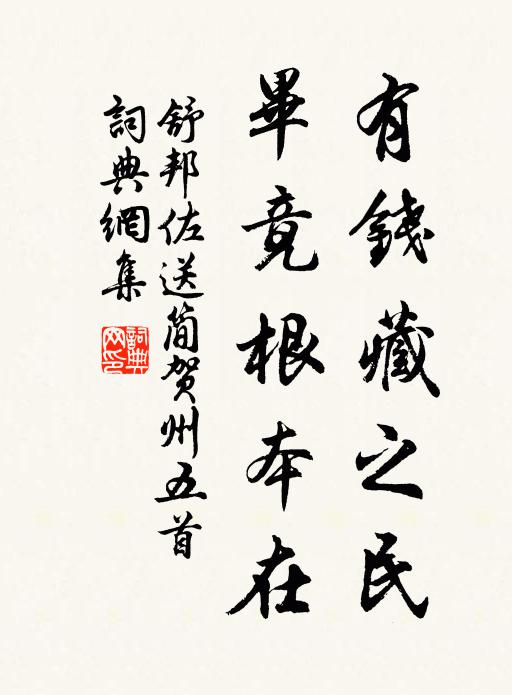 有錢藏之民
畢竟根本在
舒邦佐送簡賀州五首
詞典網集
詞典
网印